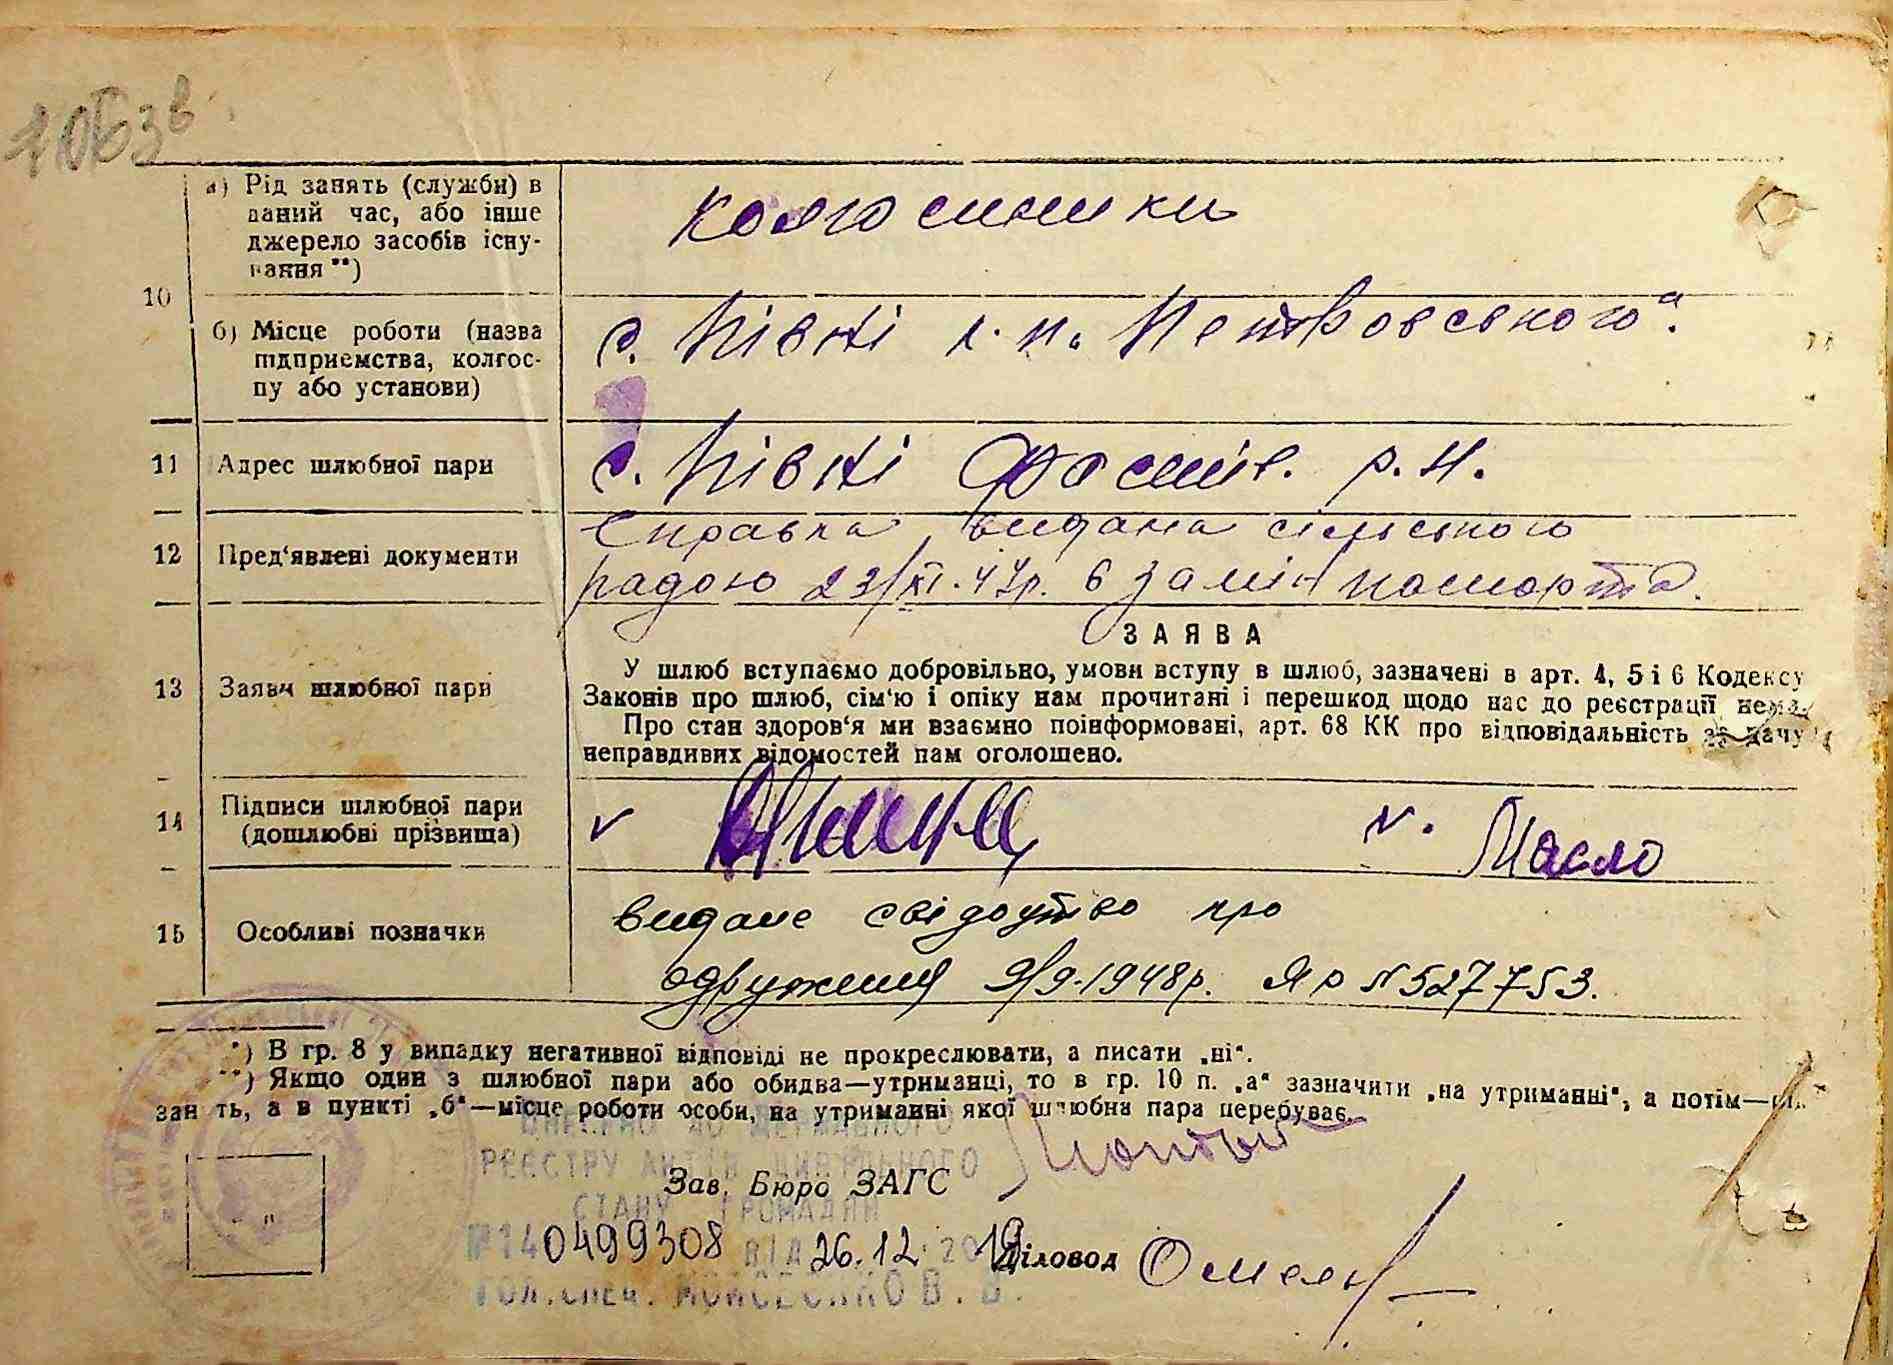 106 зв
10
а) Рід занять (служби) в
даний час, або інше
джерело засобів існу-
вання **)
колгоспники
б) Місце роботи (назва
підприємства, колгос-
пу або установи)
с. Півні к. п. Петровського".
11 Адрес шлюбної пари
с. Півні Фастів. р. н.
12 Пред'явлені документи
Справка видана сільського
радою 23/XI.47р. в замін паспорта.
13 Заява шлюбної пари
ЗАЯВА
У шлюб вступаємо добровільно, умови вступу в шлюб, зазначені в арт. 4, 5 і 6 Кодексу
Законів про шлюб, сім'ю і опіку нам прочитані і перешкод щодо нас до реєстрації нема.
Про стан здоров'я ми взаємно поінформовані, арт. 68 КК про відповідальність за дачу
неправдивих відомостей нам оголошено.
14 Підписи шлюбної пари
(дошлюбні прізвища)
Масло
15 Особливі позначки
видане свідоцтво про
одруження 9/9-1948р. ЯР № 527753.
*) В гр. 8 у випадку негативної відповіді не прокреслювати, а писати „ні".
**) Якщо один з шлюбної пари або обидва—утриманці, то в гр. 10 п. „а" зазначити „на утриманні", а потім—
занять, а в пункті „б"—місце роботи особи, на утриманні якої шлюбна пара перебуває.
ВНЕСЕНО ДО ДЕРЖАВНОГО
РЕЄСТРУ АКТІВ ЦИВІЛЬНОГО
Зав. Бюро ЗАГС
СТАНУ ГРОМАДЯН
№140499308 ВІД 26.12.2019
Діловод
ГОЛ.СПЕЦ. МОЙСЕЄНКО В. В.